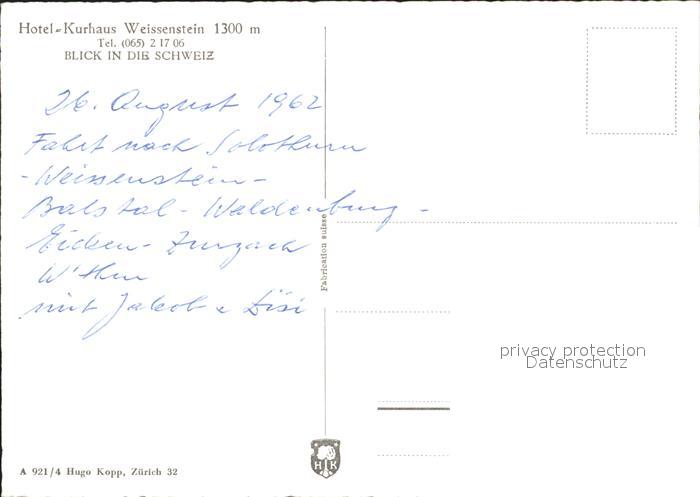 Hotel-Kurhaus Weissenstein 1300 m
Tel. (065) 2 17 06
BLICK IN DIE SCHWEIZ
26. August 1962
Fahrt nach Solothurn
-Weissenstein-
Balstal - Waldenburg -
Eicken - Zurzach
W'thur
mit Jakob u Lisi
Fabrication suisse
privacy protection
Datenschutz
H K
A 921/4 Hugo Kopp, Zürich 32